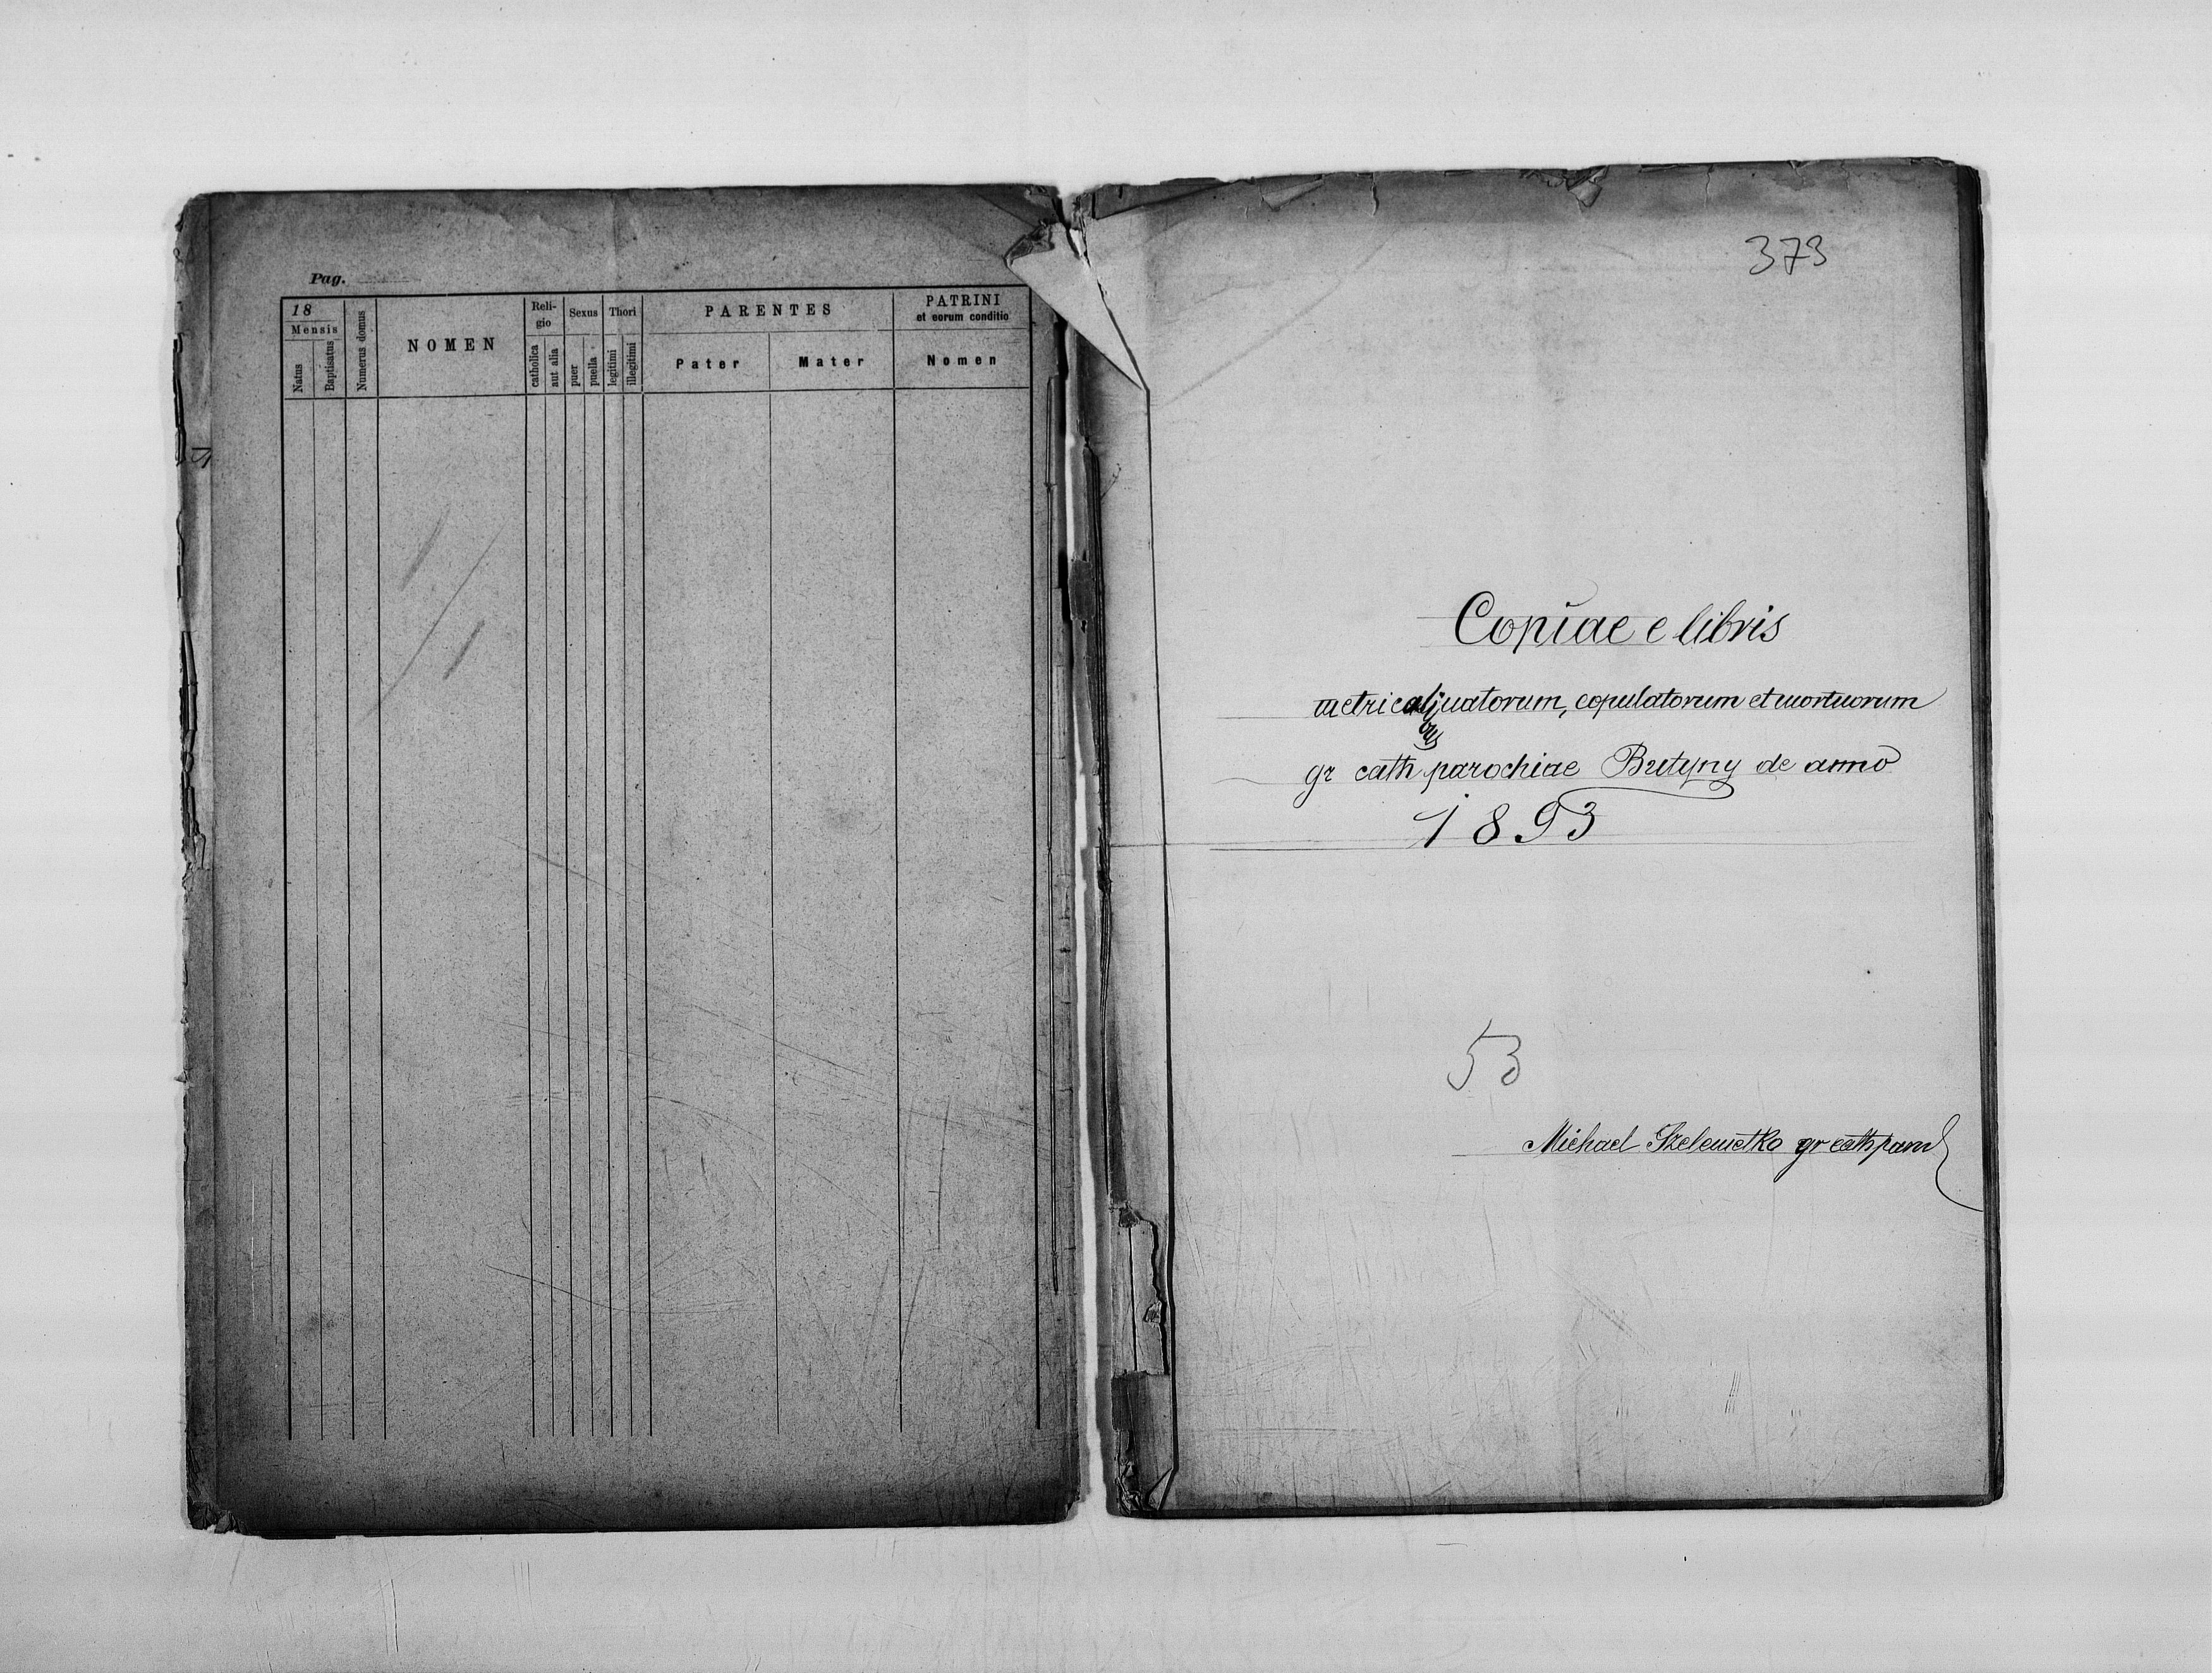 Pag.
18
Mensis
Natus
Baptisatus
Numerus domus
NOMEN
Reli-
gio
catholica
aut alia
Sexus
puer
puella
Thori
legitimi
illegitimi
PARENTES
Pater
Mater
PATRINI
et eorum conditio
Nomen
373
Copiae e libris
metricalibus natorum, copulatorum et mortuorum
gr cath parochiae Butyny de anno
1893
53
Michael Szelemetko gr cath